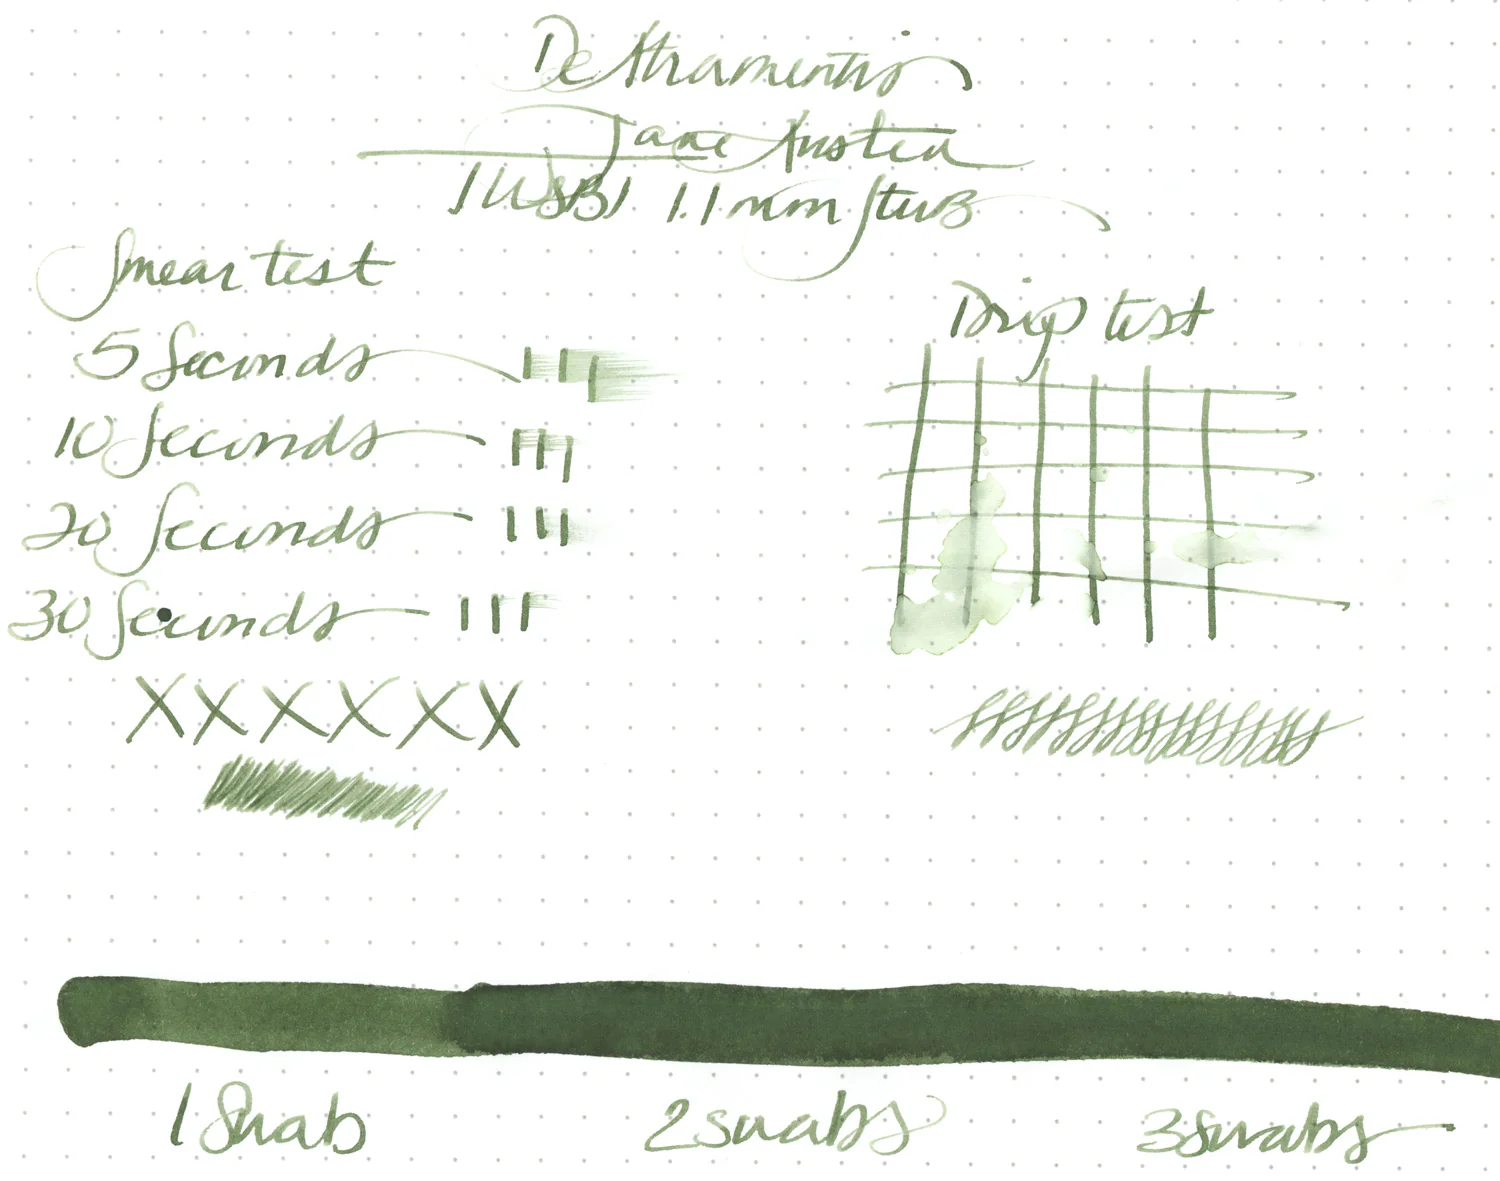 De Atramentis
Jane Austen
TWSBI 1.1 mm Stub
Smear test
Drip test
5 Seconds
10 Seconds
20 Seconds
30 Seconds
X X X X X X
1 Swab
2 swabs
3 swabs